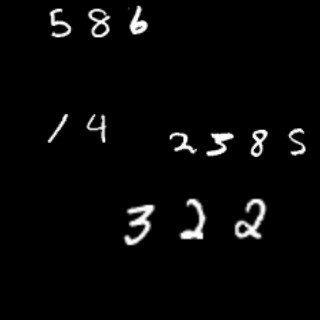 586
14
2385
322